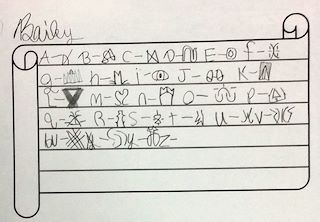 Bailey
A- B- C- D- E- f-
g- h- i- J- K-
L- M- n- O- P-
q- R- S- t- u- v-
w- x- y- z-